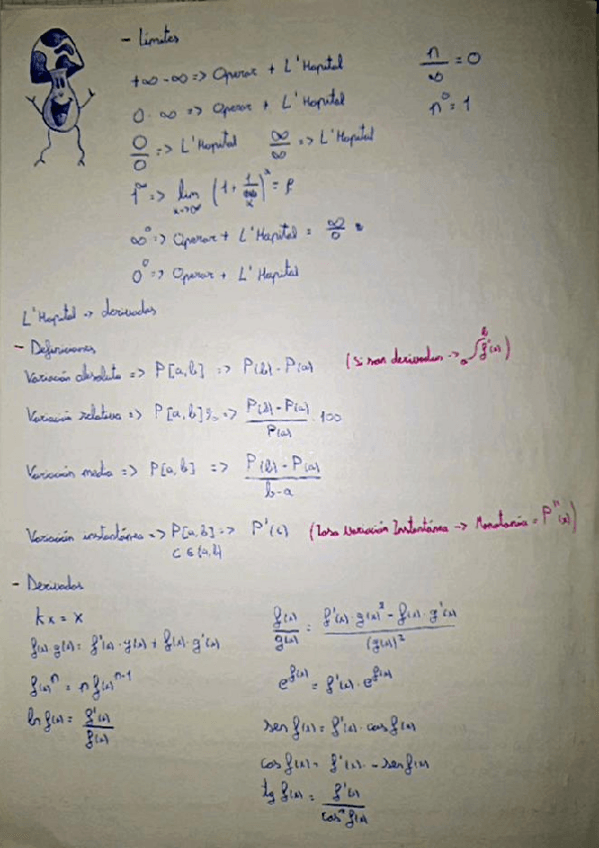 - Límites
+∞ - ∞ => Operar + L'Hopital
n/∞ = 0
0 · ∞ => Operar + L'Hopital
n⁰ = 1
0/0 => L'Hopital ∞/∞ => L'Hopital
1^∞ => lim x->∞ (1 + 1/x)^x = e
∞⁰ => Operar + L'Hopital = ∞/0
0⁰ => Operar + L'Hopital
L'Hopital -> derivadas
- Definiciones
Variación absoluta => P[a,b] => P(b) - P(a) (Si son derivadas -> a∫b f'(x))
Variación relativa => P[a,b]% => P(b) - P(a) / P(a) · 100
Variación media => P[a,b] => P(b) - P(a) / b - a
Variación instantánea => P[a,b] => P'(c) (Tasa variación Instantánea -> Monotonía = P''(x))
c ∈ (a,b)
- Derivadas
kx = x
f(x)/g(x) = f'(x) · g(x)² - f(x) · g'(x) / (g(x))²
f(x) · g(x) = f'(x) · g(x) + f(x) · g'(x)
f(x)ⁿ = n f(x)ⁿ⁻¹
e^f(x) = f'(x) · e^f(x)
ln f(x) = f'(x)/f(x)
sen f(x) = f'(x) · cos f(x)
cos f(x) = f'(x) · - sen f(x)
tg f(x) = f'(x) / cos² f(x)